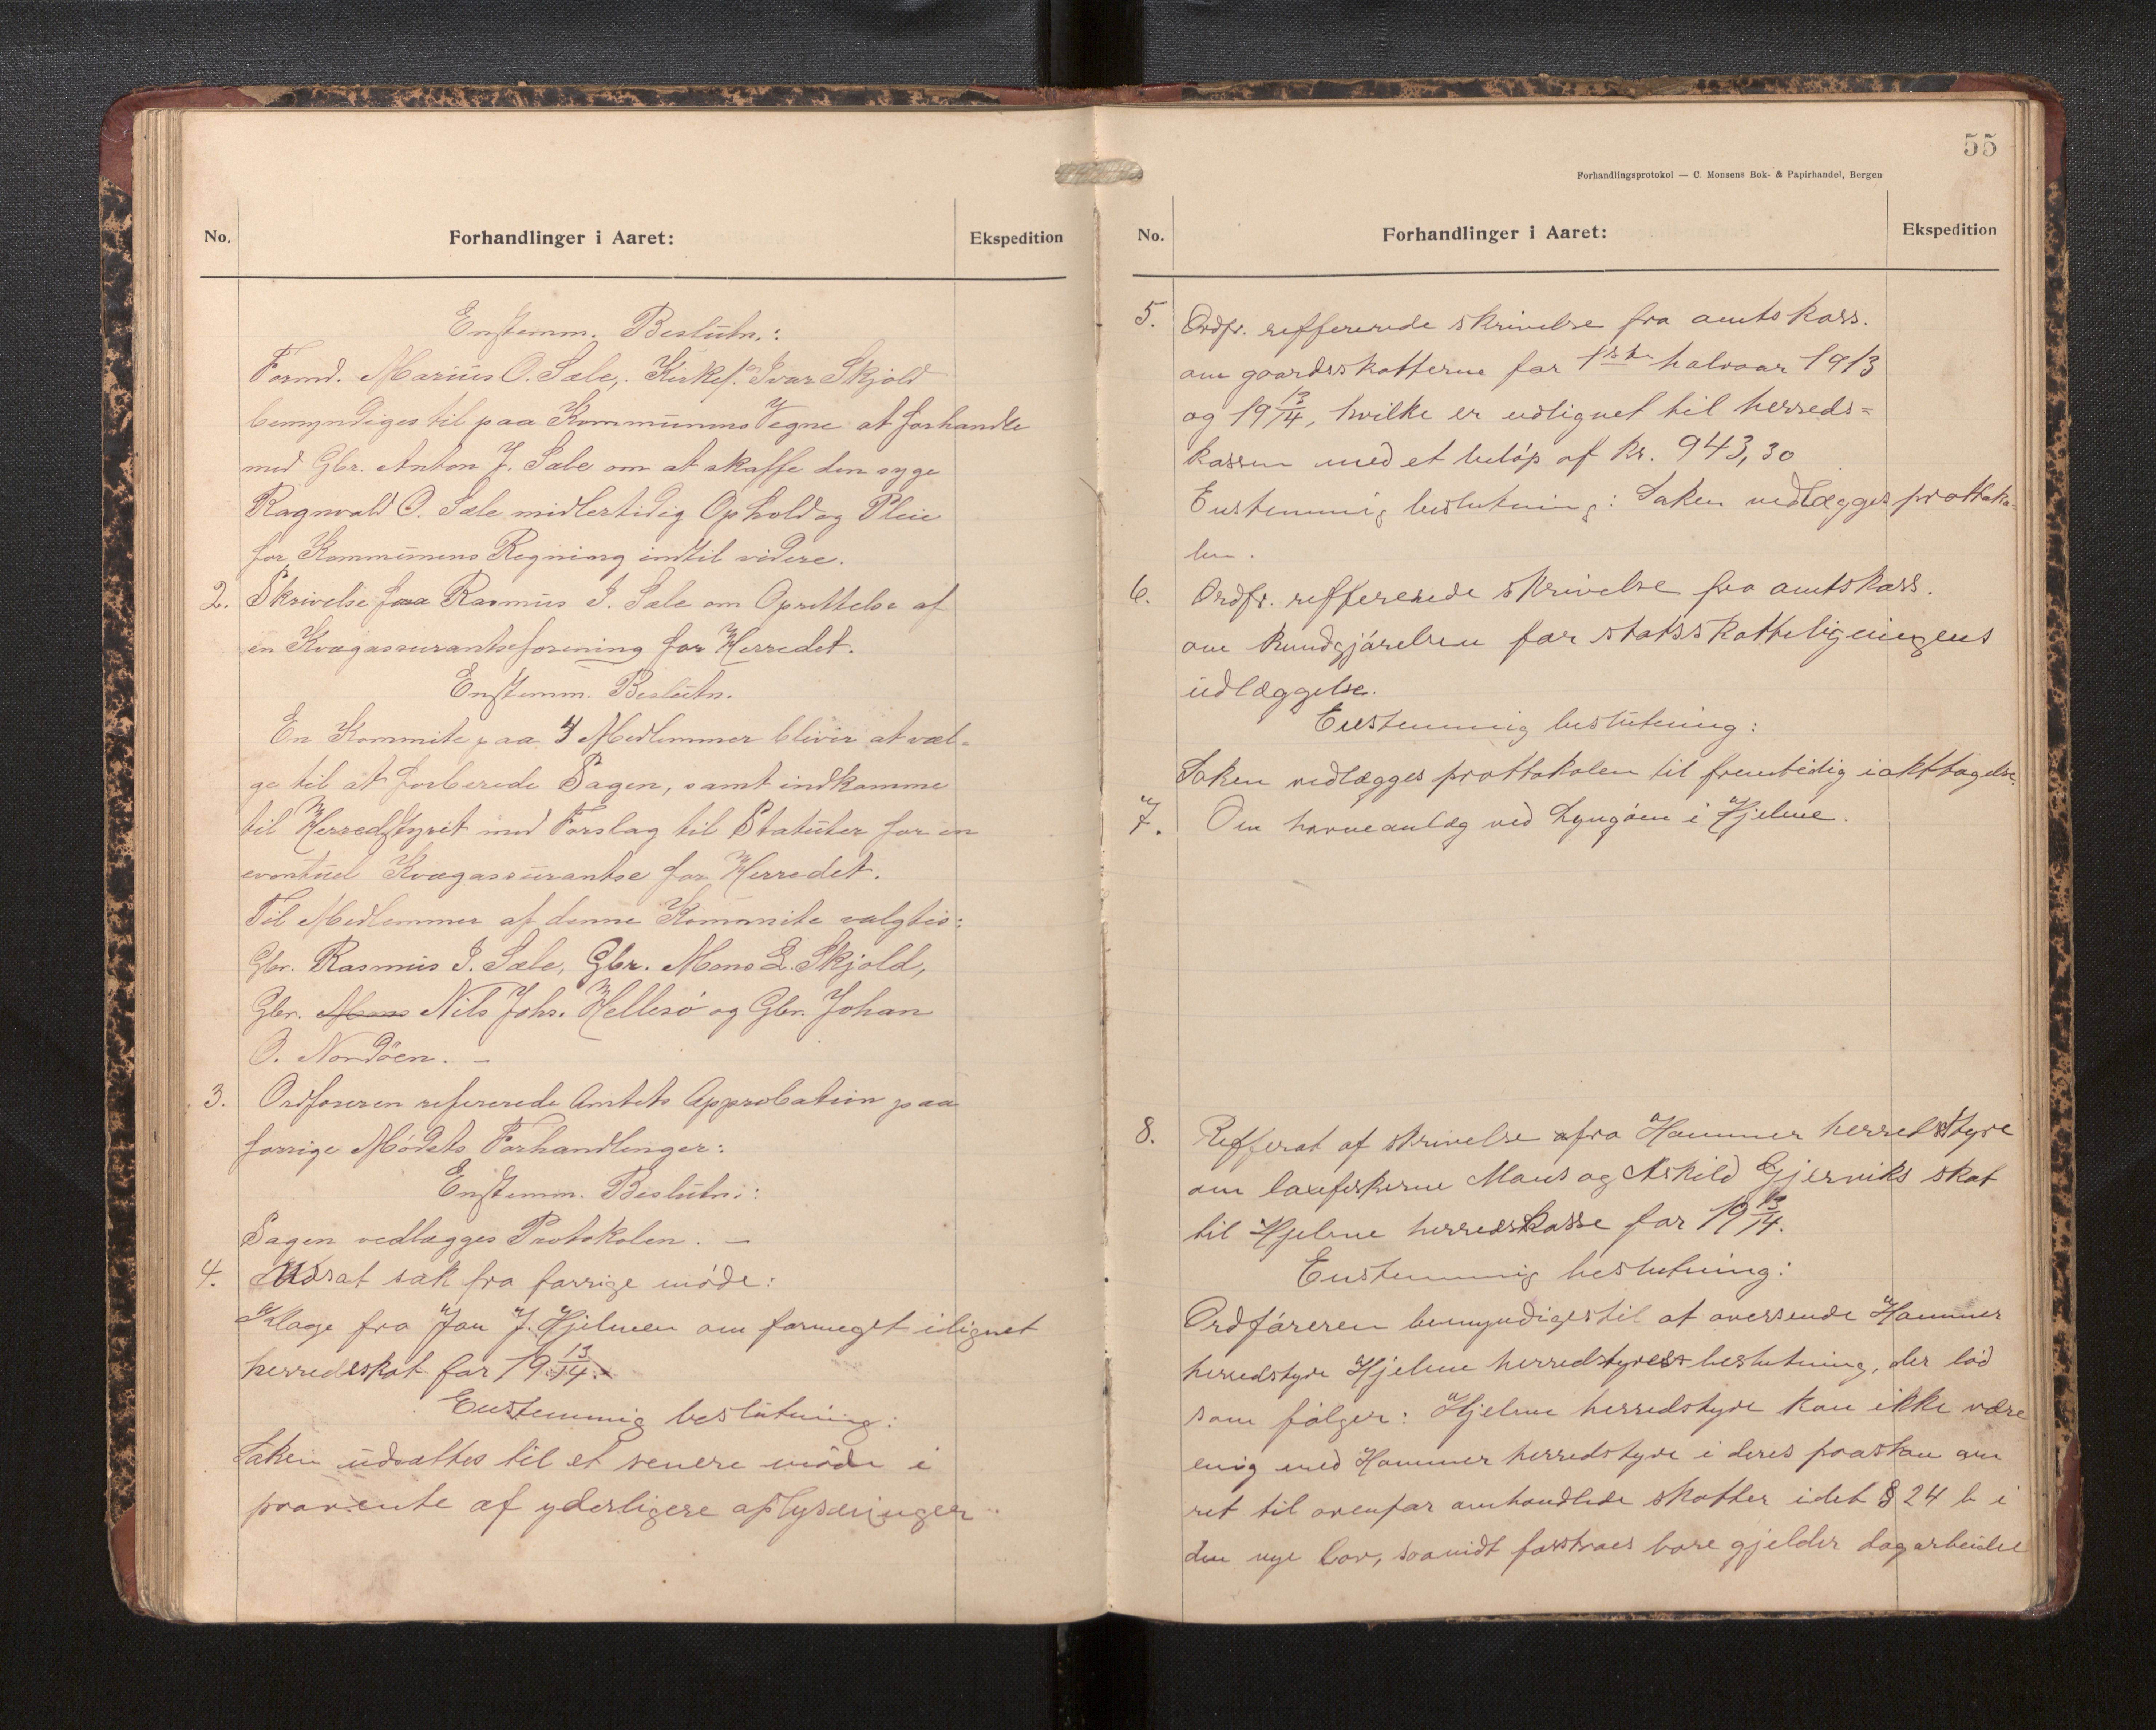 No.
Forhandlinger i Aaret:
Ekspedition
Enstemm. Beslutn.:
Formd. Marius O. Sæle, Kirkes. Ivar Skjold
bemyndiges til paa Kommunens Vegne at forhandle
med Gbr. Anton J. Sæle om at skaffe den syge
Ragnvald O. Sæle midlertidig Ophold og Pleie
for Kommunens Regning indtil videre.
2. Skrivelse fra Rasmus I. Sæle om Oprettelse af
en Kvægassuranseforening for Herredet.
Enstemm. Beslutn.
En Kommite paa 4 Medlemmer bliver at væl-
ge til at forberede Sagen, samt indkomme
til Herredstyret med Forslag til Statuter for en
eventuel Kvægassuranse for Herredet.
Til Medlemmer af denne Kommite valgtes:
Gbr. Rasmus I. Sæle, Gbr. Mons L. Skjold,
Gbr. Mons Nils Johs. Hellesø og Gbr. Johan
O. Nordøen. –
3. Ordføreren refererede Amtets Approbation paa
forrige Mødets Forhandlinger:
Enstemm. Beslutn.:
Sagen vedlægges Protokolen. –
4. Udsat sak fra forrige møde:
Klage fra Jan J. Hjelmen om formeget ilignet
herredsskat for 19 13/14.
Enstemmig beslutning:
Saken udsættes til et senere møde i
paavente af yderligere oplysninger
55
Forhandlingsprotokol — C. Monsens Bok- & Papirhandel, Bergen
No.
Forhandlinger i Aaret:
Ekspedition
5. Ordfr. reffererede skrivelse fra amtskass.
om gaardsskatterne for 1ste halvaar 1913
og 19 13/14, hvilke er udlignet til herreds=
kassen med et beløp af kr. 943,30
Enstemmig beslutning: Saken vedlægges prottoko-
len.
6. Ordfr. reffererede skrivelse fra amtskass.
om kundgjørelsen for statsskatteligningens
udlæggelse.
Enstemmig beslutning:
Saken vedlægges prottokolen til fremtidig iakttagelse.
7. Om havneanlæg ved Lyngøen i Hjelme.
8. Refferat af skrivelse fra Hammer herredsstyre
om laxefiskerne Mons og Askild Gjerviks skat
til Hjelme herredskasse for 19 13/14.
Enstemmig beslutning:
Ordføreren bemyndiges til at oversende Hammer
herredstyre Hjelme herredstyres beslutning, der lød
som følger: Hjelme herredstyre kan ikke være
enig med Hammer herredstyre i deres paastan om
ret til ovenfor omhandlede skatter idet § 24 b i
den nye lov, saavidt forstaaes bare gjelder dagarbeidere